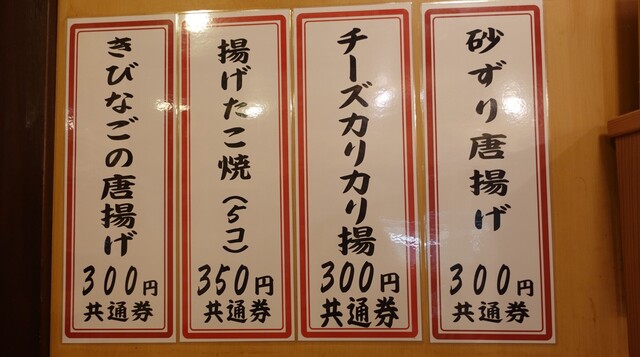 砂ずり唐揚げ
300円
共通券
チーズカリカリ揚
300円
共通券
揚げたこ焼(5コ)
350円
共通券
きびなごの唐揚げ
300円
共通券